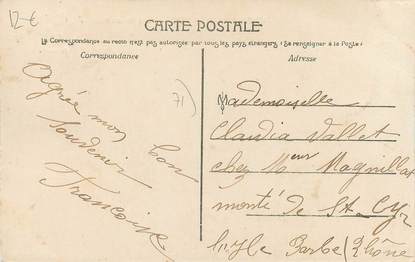 12 €
CARTE POSTALE
La Correspondance au recto n'est pas autorisée par tous les pays étrangers (Se renseigner à la Poste)
Correspondance
Adresse
71
Agrée mon bon
Souvenir
Françoise
Mademoiselle
Claudia Vallet
chez Meur Magnillat
monté de St Cyr
Barbe (Rhône